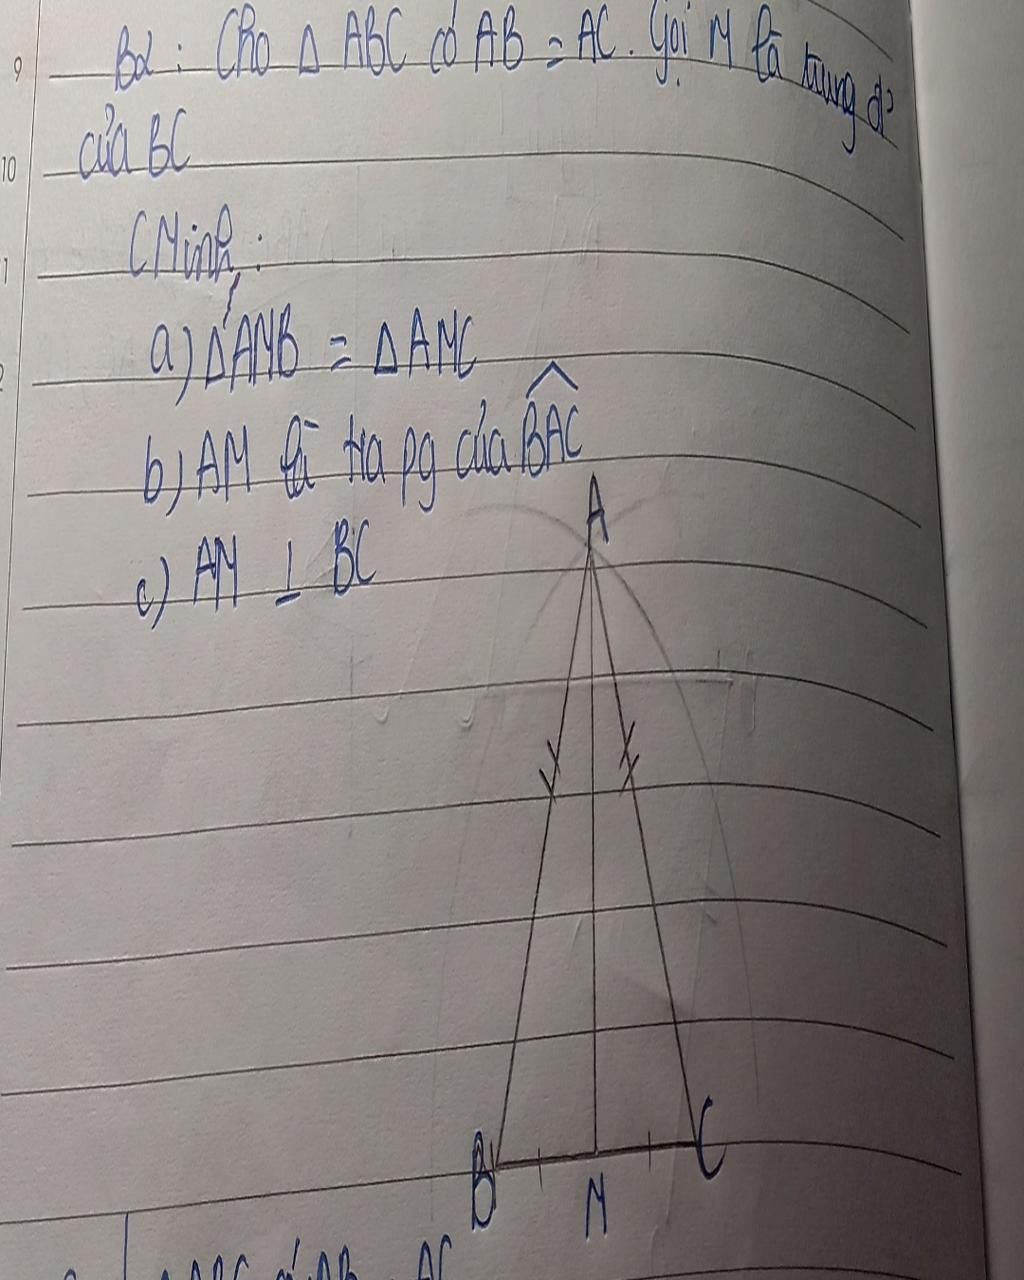 9
Bd : Cho Δ ABC có AB = AC. Gọi M là trung đ²
10
của BC
CMinh :
a) ΔAMB = ΔAMC
b) AM là tia pg của BAC
c) AM ⊥ BC
A
B
M
C
ABC có AB = AC